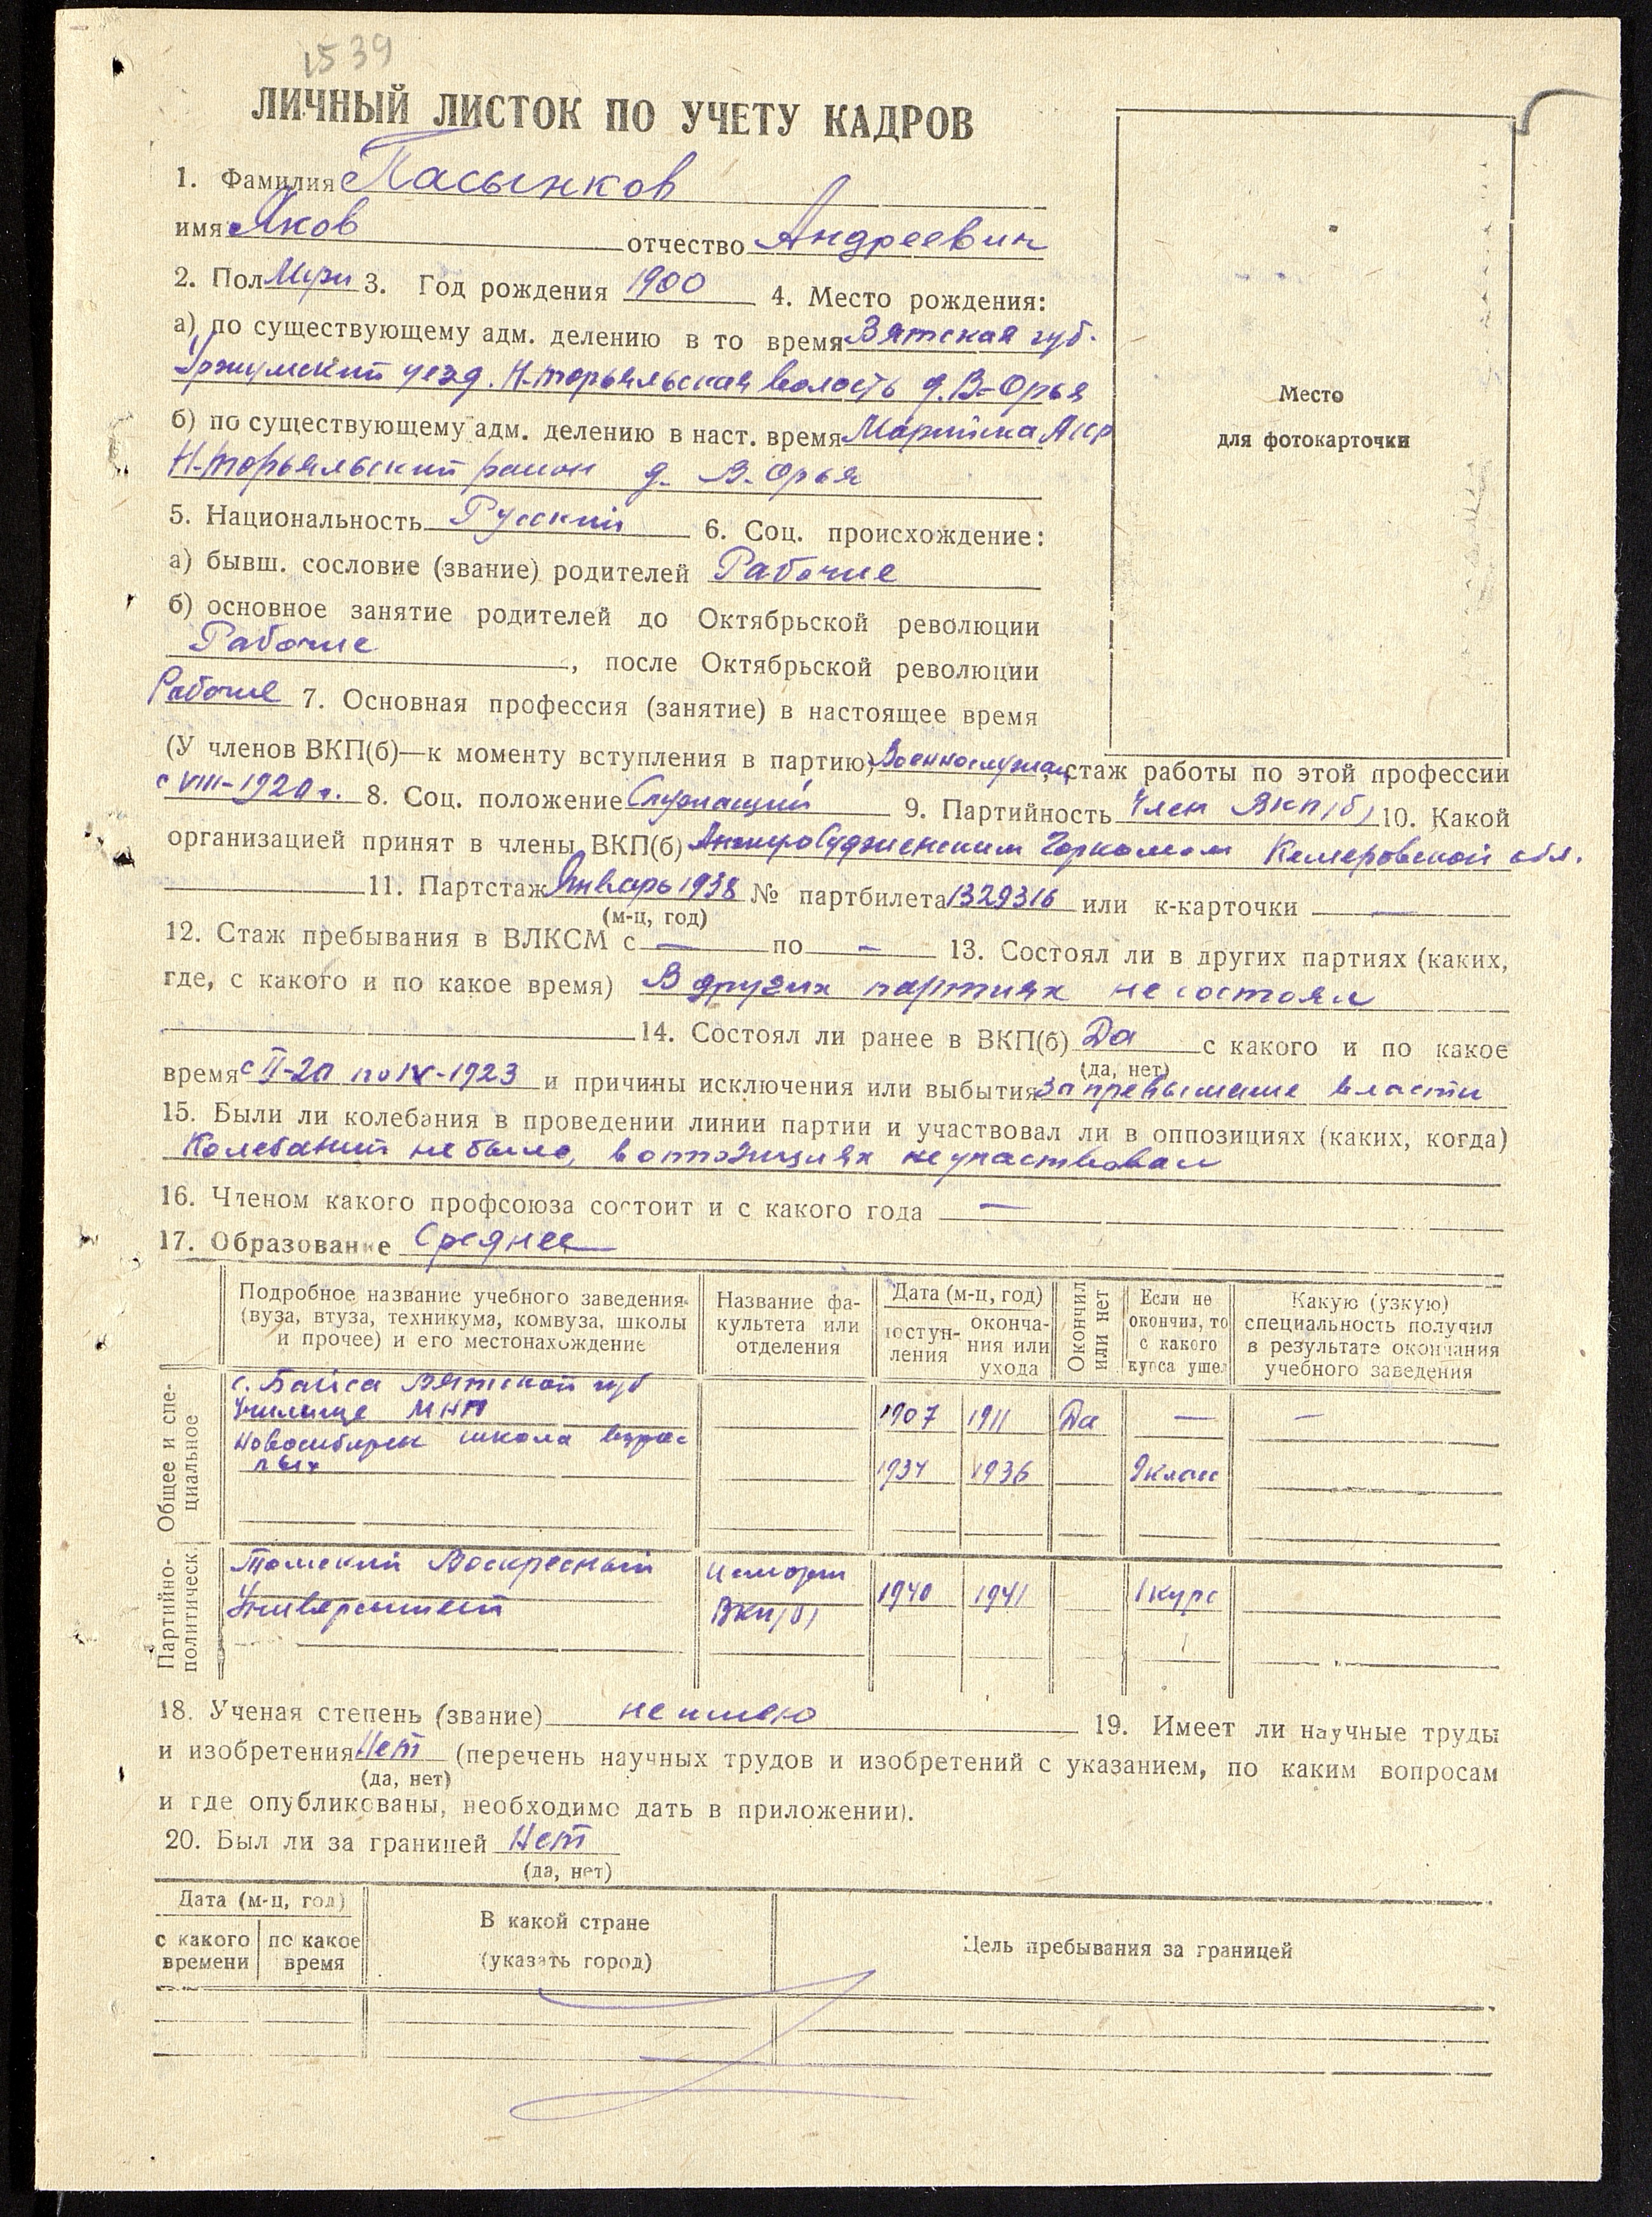 1539
ЛИЧНЫЙ ЛИСТОК ПО УЧЕТУ КАДРОВ
1. Фамилия Пасынков
имя Яков отчество Андреевич
2. Пол Муж 3. Год рождения 1900 4. Место рождения:
а) по существующему адм. делению в то время Вятская губ.
Уржумский уезд. Н-торъяльская волость д. В-Орья
б) по существующему адм. делению в наст. время Марийска Аср
Н-торъяльский район д. В-Орья
Место
для фотокарточки
5. Национальность Русский 6. Соц. происхождение:
а) бывш. сословие (звание) родителей Рабочие
б) основное занятие родителей до Октябрьской революции
Рабочие, после Октябрьской революции
Рабочие 7. Основная профессия (занятие) в настоящее время
(У членов ВКП(б)—к моменту вступления в партию) стаж работы по этой профессии
с VIII-1920 г. 8. Соц. положение Служащий 9. Партийность Член ВКП(б) 10. Какой
организацией принят в члены ВКП(б) Анжеро Судженским Горкомом Кемеровской обл.
11. Партстаж Январь 1938 № партбилета 1329316 или к-карточки —
(м-ц, год)
12. Стаж пребывания в ВЛКСМ с — по — 13. Состоял ли в других партиях (каких,
где, с какого и по какое время) В других партиях не состоял
14. Состоял ли ранее в ВКП(б) Да с какого и по какое
(да, нет)
время с II-20 по IV-1923 и причины исключения или выбытия За превышение власти
15. Были ли колебания в проведении линии партии и участвовал ли в оппозициях (каких, когда)
Колебаний не было, в оппозициях не участвовал
16. Членом какого профсоюза состоит и с какого года —
17. Образование Среднее
Подробное название учебного заведения (вуза, втуза, техникума, комвуза, школы и прочее) и его местонахождение
Название факультета или отделения
Дата (м-ц, год)
поступления
окончания или ухода
Окончил или нет
Если не окончил, то с какого курса ушел
Какую (узкую) специальность получил в результате окончания учебного заведения
Общее и специальное
с. Байса Вятской губ
Училище МНП 1907 1911 Да — —
Новосибирск школа взрос
лых 1934 1936 9 класс
Партийно-политическ.
Томский Воскресный Истории
Университет ВКП(б) 1940 1941 1 курс
18. Ученая степень (звание) не имею 19. Имеет ли научные труды
и изобретения Нет (перечень научных трудов и изобретений с указанием, по каким вопросам
(да, нет)
и где опубликованы, необходимо дать в приложении).
20. Был ли за границей Нет
(да, нет)
Дата (м-ц, год)
с какого времени
по какое время
В какой стране
(указать город)
Цель пребывания за границей